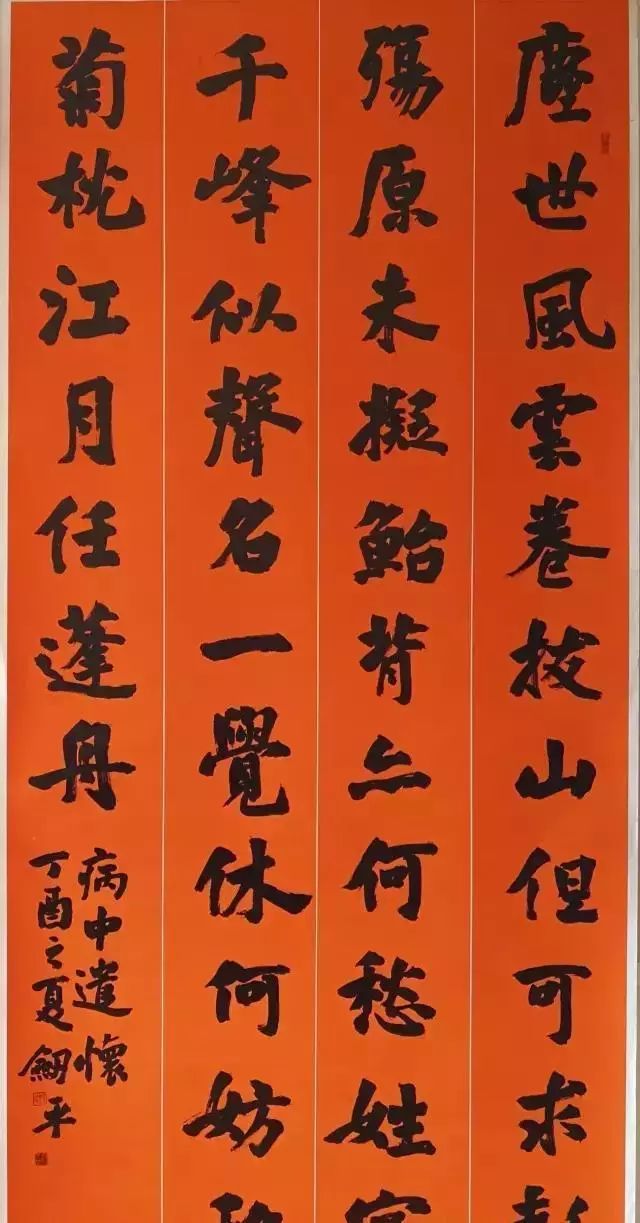 塵世風雲卷拔山但可求彭
殤原未擬鮐背亦何愁姓
千峰似聲名一覺休何妨
菊枕江月任蓬舟
病中遣懷
丁酉之夏劍平